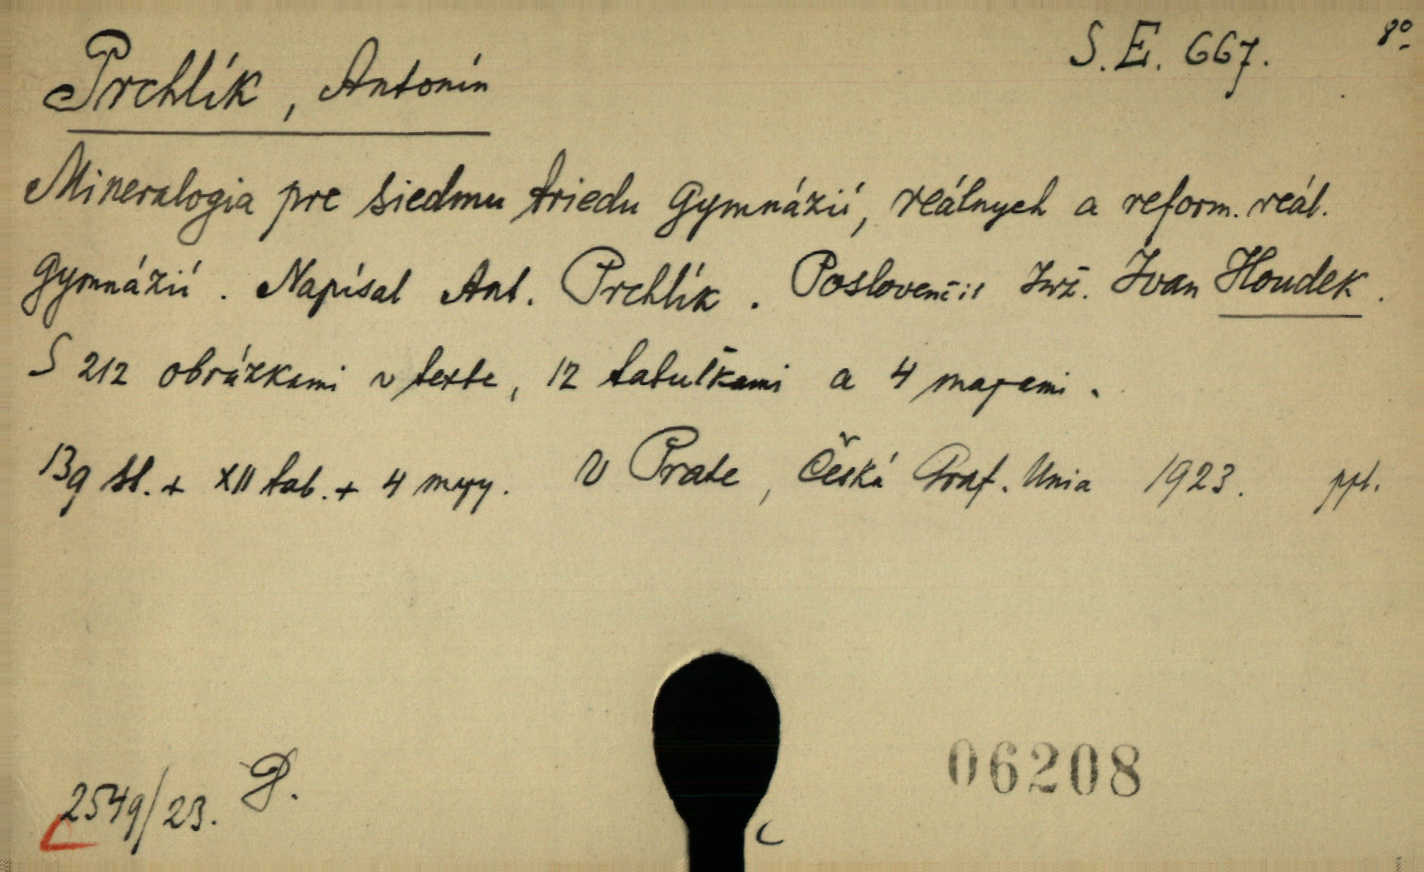 S. E. 667. 8º
Prchlík, Antonín
Mineralogia pre siedmu triedu gymnázií, reálnych a reform. reál.
gymnázií. Napísal Ant. Prchlík. Poslovenčil Inž. Ivan Houdek.
S 212 obrázkami v texte, 12 tabuľkami a 4 mapami.
139 st. + XII tab. + 4 mapy. V Prahe, Česká Graf. Unia 1923. ppl.
2549/23. P.
06208